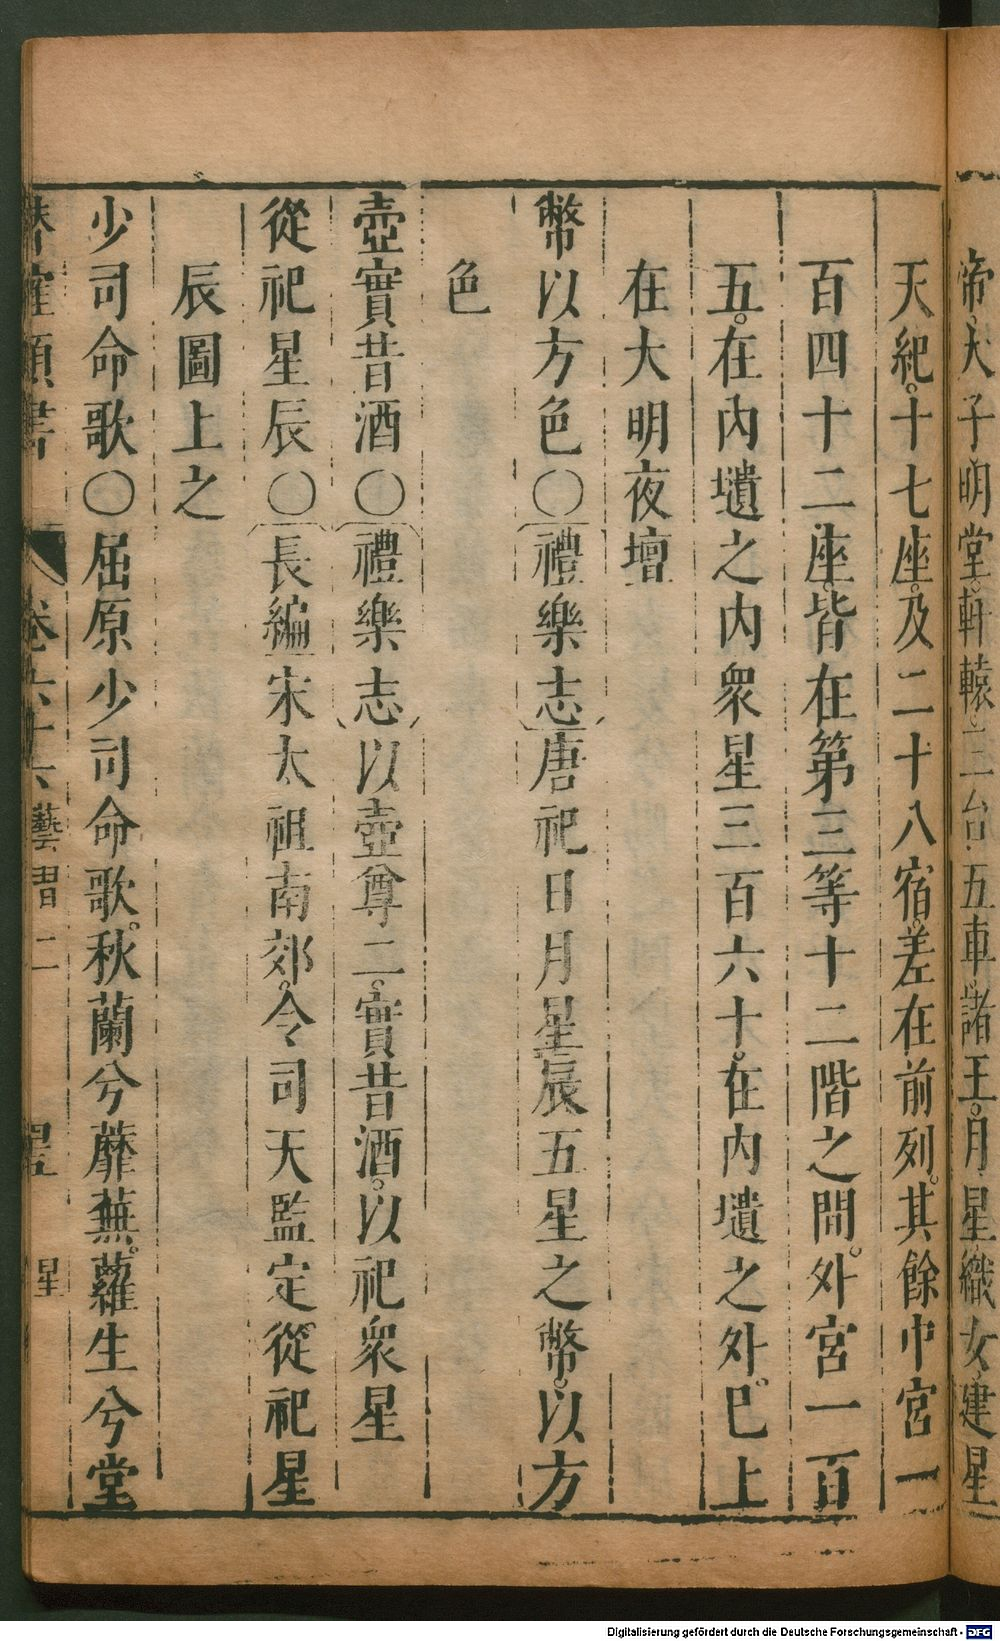 帝。大子明堂。軒轅。三台。五車。諸王。月星。織女。建星
天紀。十七座。及二十八宿。差在前列。其餘中宮一
百四十二座。皆在第三等十二階之間。外宮一百
五。在內壝之內衆星三百六十。在內壝之外。巳上
在大明夜壇
幣以方色○禮樂志唐祀日月星辰五星之幣。以方
色
壺實昔酒○禮樂志以壺尊二。實昔酒。以祀衆星
從祀星辰○長編宋太祖南郊。令司天監定從祀星
辰圖上之
少司命歌○屈原少司命歌。秋蘭兮蘼蕪。羅生兮堂
卷六十六 藝習二 星
Digitalisierung gefördert durch die Deutsche Forschungsgemeinschaft - DFG